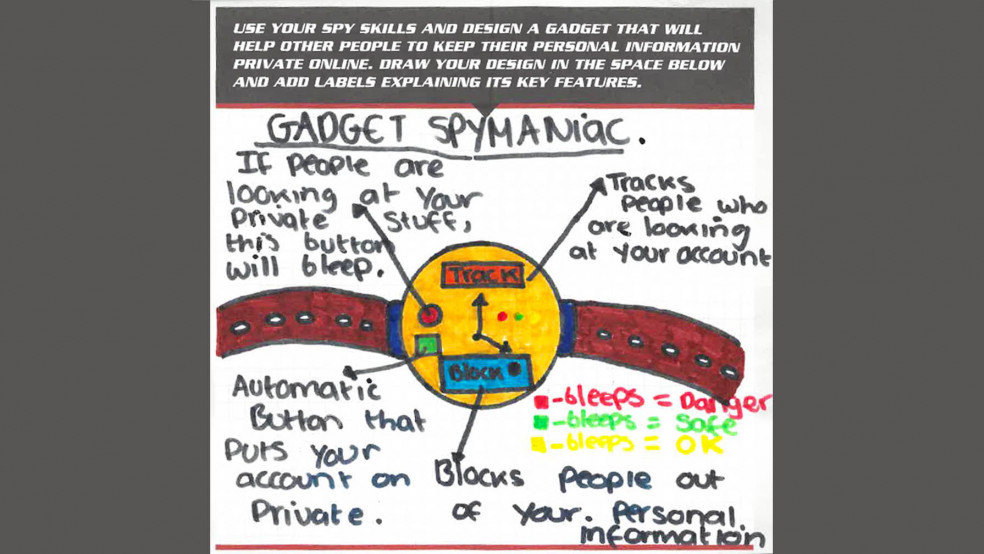 USE YOUR SPY SKILLS AND DESIGN A GADGET THAT WILL
HELP OTHER PEOPLE TO KEEP THEIR PERSONAL INFORMATION
PRIVATE ONLINE. DRAW YOUR DESIGN IN THE SPACE BELOW
AND ADD LABELS EXPLAINING ITS KEY FEATURES.
GADGET SPYMANiAC.
If people are
looking at your
Private Stuff,
this button
will bleep.
Tracks
People who
are looking
at your account
Track
Block
Automatic
Button that
Puts your
account on
Private.
-bleeps = Danger
-bleeps = Safe
-bleeps = OK
Blocks people out
of your. Personal.
information